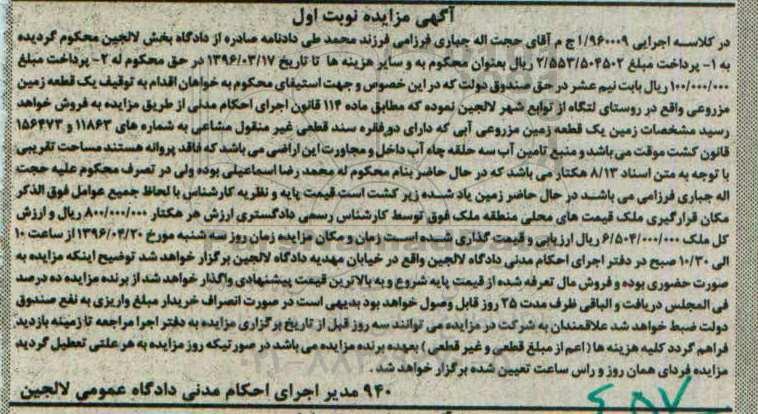 آگهی مزایده نوبت اول
در کلاسه اجرایی ۹۶۰۰۰۹/۱ج م آقای حجت اله جباری فرزامی فرزند محمد طی دادنامه صادره از دادگاه بخش لالجین محکوم گردیده
به ۱- پرداخت مبلغ ۲/۵۵۳/۵۰۴۵۰۲ ریال بعنوان محکوم به و سایر هزینه ها تا تاریخ ۱۳۹۶/۰۳/۱۷ در حق محکوم له ۲- پرداخت مبلغ
۱۰۰/۰۰۰/۰۰۰ ریال بابت نیم عشر در حق صندوق دولت که در این خصوص و جهت استیفای محکوم به خواهان اقدام به توقیف یک قطعه زمین
مزروعی واقع در روستای لتگاه از توابع شهر لالجین نموده که مطابق ماده ۱۱۴ قانون اجرای احکام مدنی از طریق مزایده به فروش خواهد
رسید مشخصات زمین یک قطعه زمین مزروعی آبی که دارای دو فقره سند قطعی غیر منقول مشاعی به شماره های ۱۱۸۶۳ و ۱۵۶۴۷۳
قانون کشت موقت می باشد و منبع تامین آب سه حلقه چاه آب داخل و مجاورت این اراضی می باشد که فاقد پروانه هستند مساحت تقریبی
با توجه به متن اسناد ۸/۱۳ هکتار می باشد که در حال حاضر بنام محکوم له محمد رضا اسماعیلی بوده ولی در تصرف محکوم علیه حجت
اله جباری فرزامی می باشد در حال حاضر زمین یاد شده زیر کشت است قیمت پایه و نظریه کارشناس با لحاظ جمیع عوامل فوق الذکر
مکان قرارگیری ملک قیمت های محلی منطقه ملک فوق توسط کارشناس رسمی دادگستری ارزش هر هکتار ۸۰۰/۰۰۰/۰۰۰ ریال و ارزش
کل ملک ۶/۵۰۴/۰۰۰/۰۰۰ ریال ارزیابی و قیمت گذاری شده است زمان و مکان مزایده زمان روز سه شنبه مورخ ۱۳۹۶/۰۴/۲۰ از ساعت ۱۰
الی ۱۰/۳۰ صبح در دفتر اجرای احکام مدنی دادگاه لالجین واقع در خیابان مهدیه دادگاه لالجین برگزار خواهد شد توضیح اینکه مزایده به
صورت حضوری بوده و فروش مال تعرفه شده از قیمت پایه شروع و به بالاترین قیمت پیشنهادی واگذار خواهد شد از برنده مزایده ده درصد
فی المجلس دریافت و الباقی ظرف مدت ۲۵ روز قابل وصول خواهد بود بدیهی است در صورت انصراف خریدار مبلغ واریزی به نفع صندوق
دولت ضبط خواهد شد علاقمندان به شرکت در مزایده می توانند سه روز قبل از تاریخ برگزاری مزایده به دفتر اجرا مراجعه تا زمینه بازدید
فراهم گردد کلیه هزینه ها (اعم از مبلغ قطعی و غیر قطعی) بعهده برنده مزایده می باشد در صورتیکه روز مزایده به هر علتی تعطیل گردید
مزایده فردای همان روز و راس ساعت تعیین شده برگزار خواهد شد.
۹۴۰ مدیر اجرای احکام مدنی دادگاه عمومی لالجین